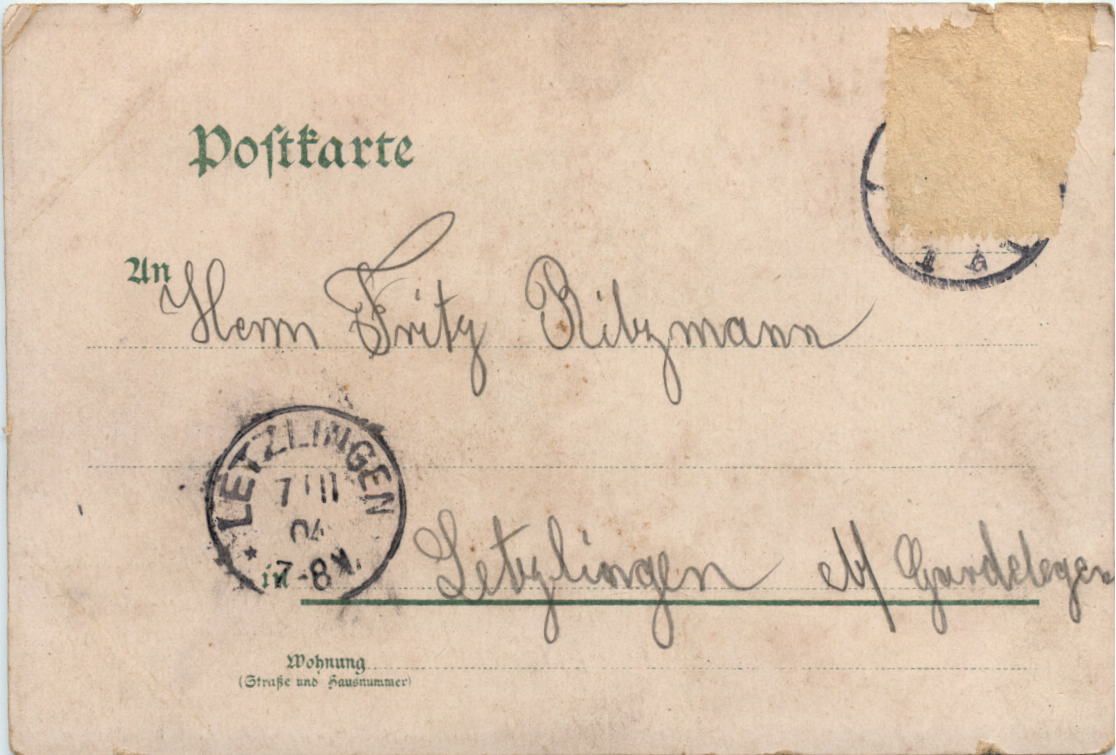 Postkarte
An Herrn Fritz Ritzmann
LETZLINGEN
7 11
04
7-8V.
in Letzlingen Gardelegen
Wohnung
(Straße und Hausnummer)